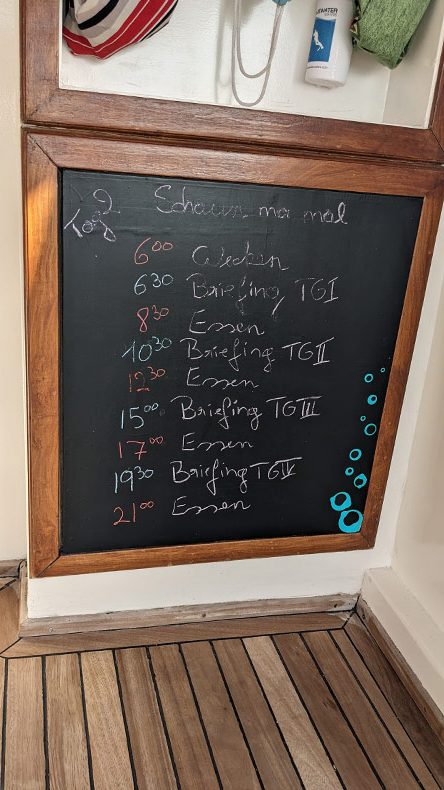 Tag 2 Schaun ma mal
6⁰⁰ Wecken
6³⁰ Briefing, TG I
8³⁰ Essen
10³⁰ Briefing TG II
12³⁰ Essen
15⁰⁰ Briefing TG III
17⁰⁰ Essen
19³⁰ Briefing TG IV
21⁰⁰ Essen